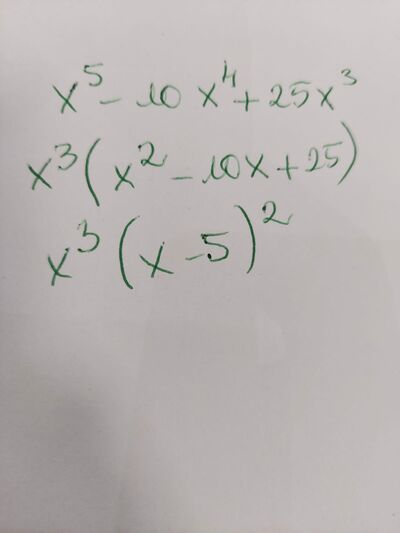 x⁵ - 10x⁴ + 25x³
x³(x² - 10x + 25)
x³(x - 5)²